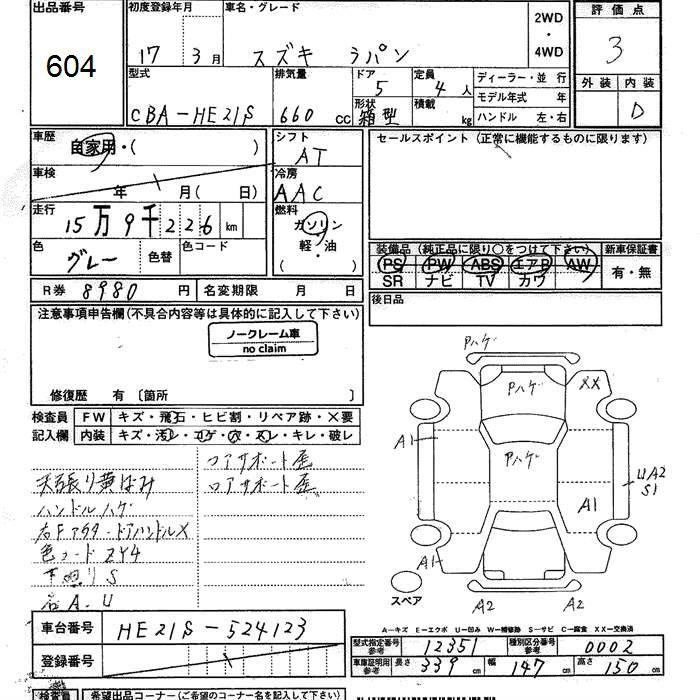 出品番号 604
初度登録年月 17 3月
車名・グレード スズキ ラパン
2WD・4WD
評価点 3
外装 内装 D
型式 CBA-HE21S
排気量 660 cc
ドア 5
形状 箱型
定員 4人
積載 kg
ディーラー・並行
モデル年式 年
ハンドル 左・右
車歴 自家用・( )
シフト AT
セールスポイント(正常に機能するものに限ります)
車検 年 月( 日)
冷房 AAC
走行 15万9千226km
燃料 ガソリン 軽・油 ( )
色 グレー 色替 色コード
装備品(純正品に限り○をつけて下さい) 新車保証書
PS PW ABS エアB AW
SR ナビ TV カワ
有・無
R券 8980円 名変期限 月 日
後日品
注意事項申告欄(不具合内容等は具体的に記入して下さい)
ノークレーム車
no claim
修復歴 有〔箇所 〕
検査員記入欄
FW キズ・飛石・ヒビ割・リペア跡・×要
内装 キズ・汚レ・コゲ・穴・スレ・キレ・破レ
コアサポート歪
天張り黄ばみ ロアサポート歪
ハンドルハゲ
右Fアウタードアハンドル×
色コード ZY4
下廻りS
A.U
Pハゲ
Pハゲ
XX
Pハゲ
A1
A1
UA2
S1
A1
A2
A2
スペア
A-キズ E-エクボ U-凹み W-補修跡 S-サビ C-腐食 XX-交換済
車台番号 HE21S-524123
登録番号
型式指定番号 参考 12351 種別区分番号 参考 0002
車庫証明用 参考 長さ 339cm 幅 147cm 高さ 150cm
検査員 希望出品コーナー(ご希望のコーナー名を記入して下さい)